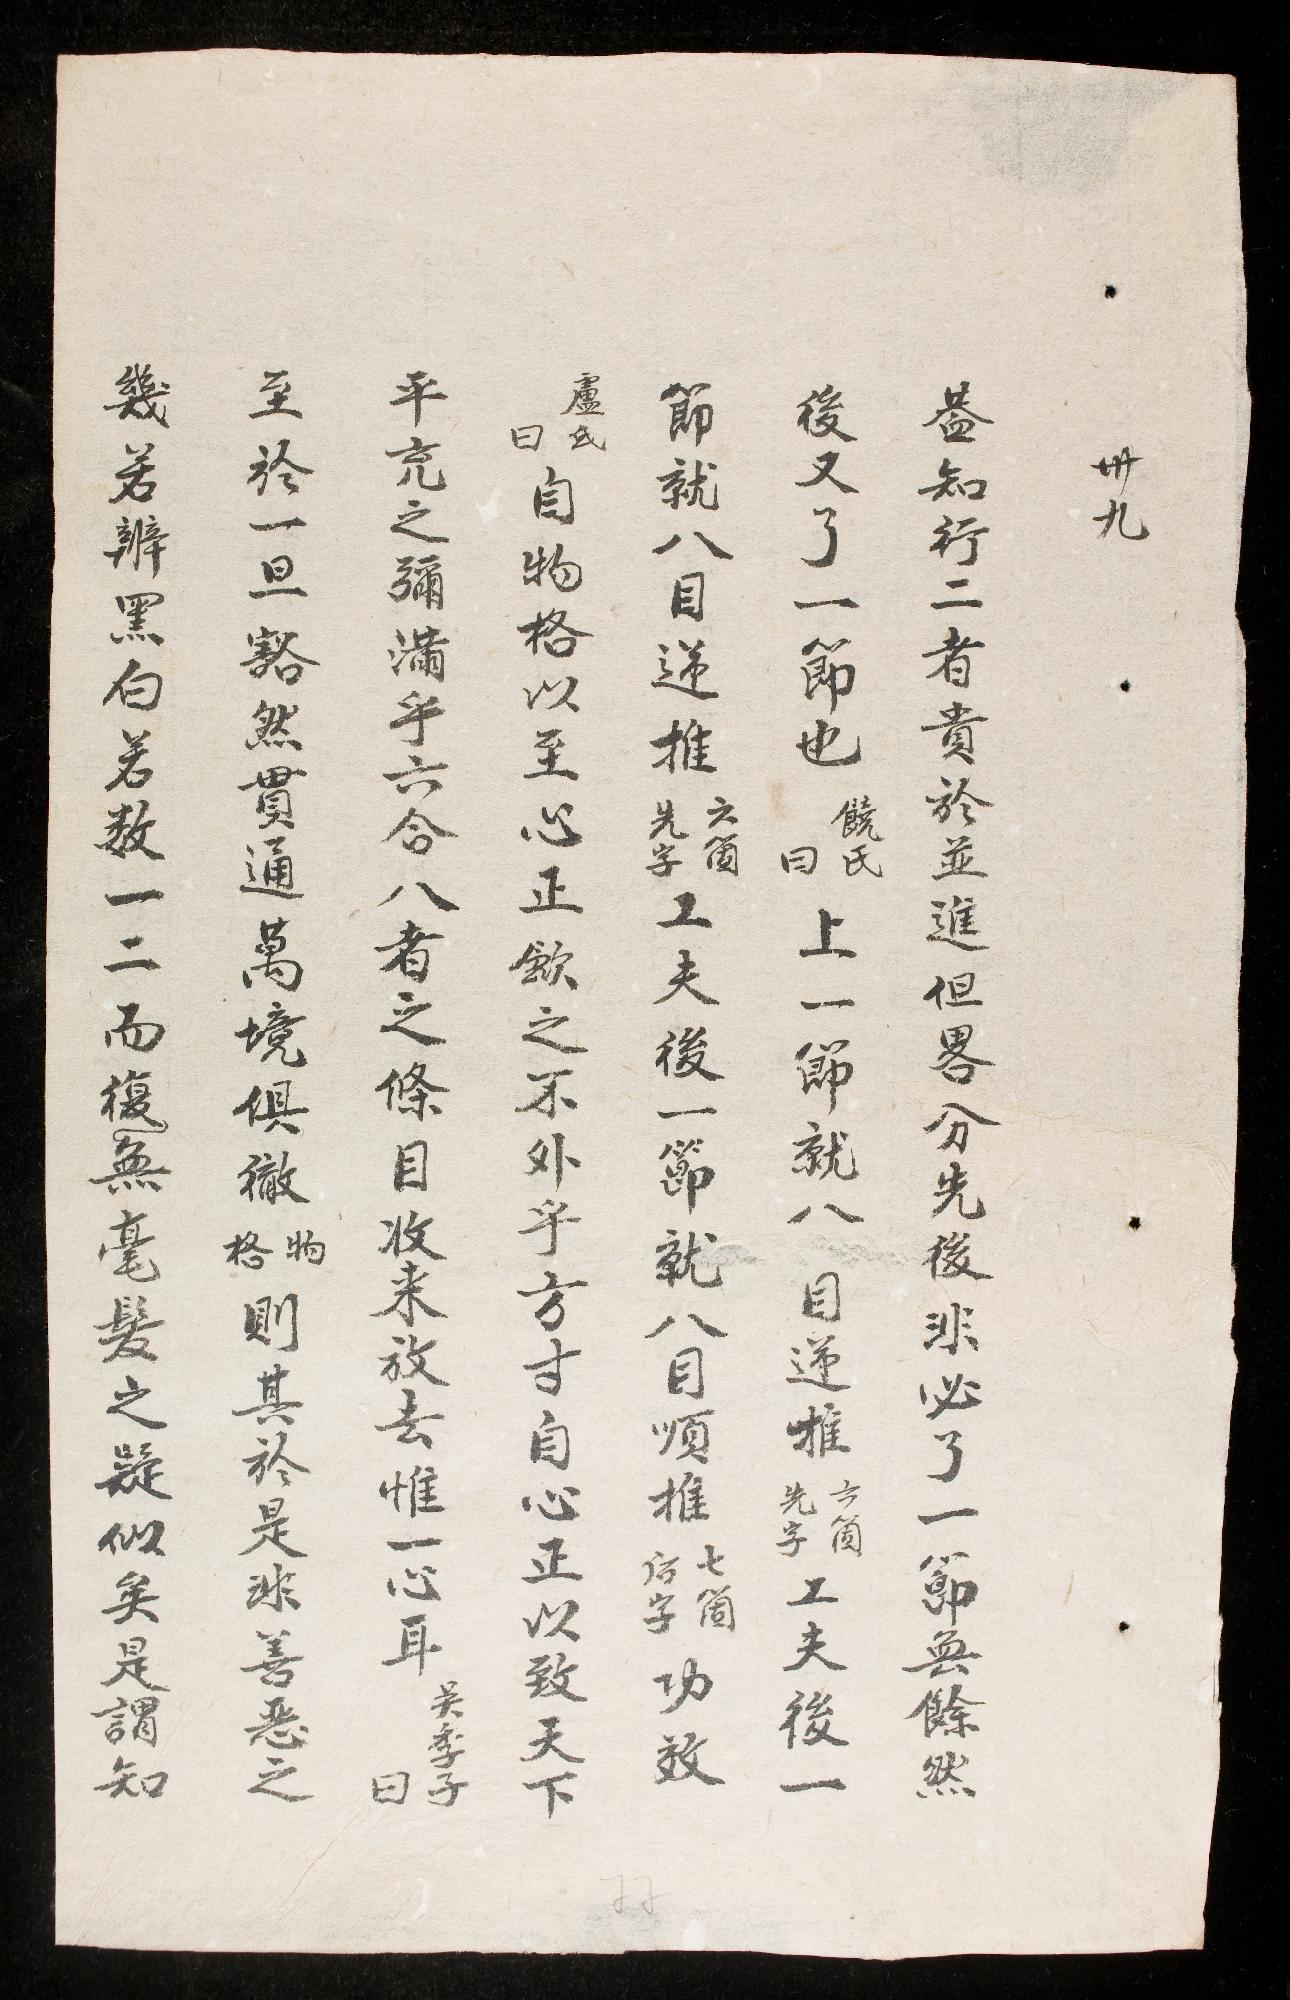 卅九
葢知行二者貴於並進但畧分先後非必了一節無餘然
後又了一節也饒氏曰上一節就八目逆推六箇先字工夫後一
節就八目逆推六箇先字工夫後一節就八目順推七箇后字功效
盧氏曰自物格以至心正歛之不外乎方寸自心正以致天下
平充之彌滿乎六合八者之條目收来放去惟一心耳吴季子曰
至於一旦豁然貫通萬境俱徹物格則其於是非善惡之
幾若辨黑白若数一二而復無毫髮之疑似矣是謂知
77